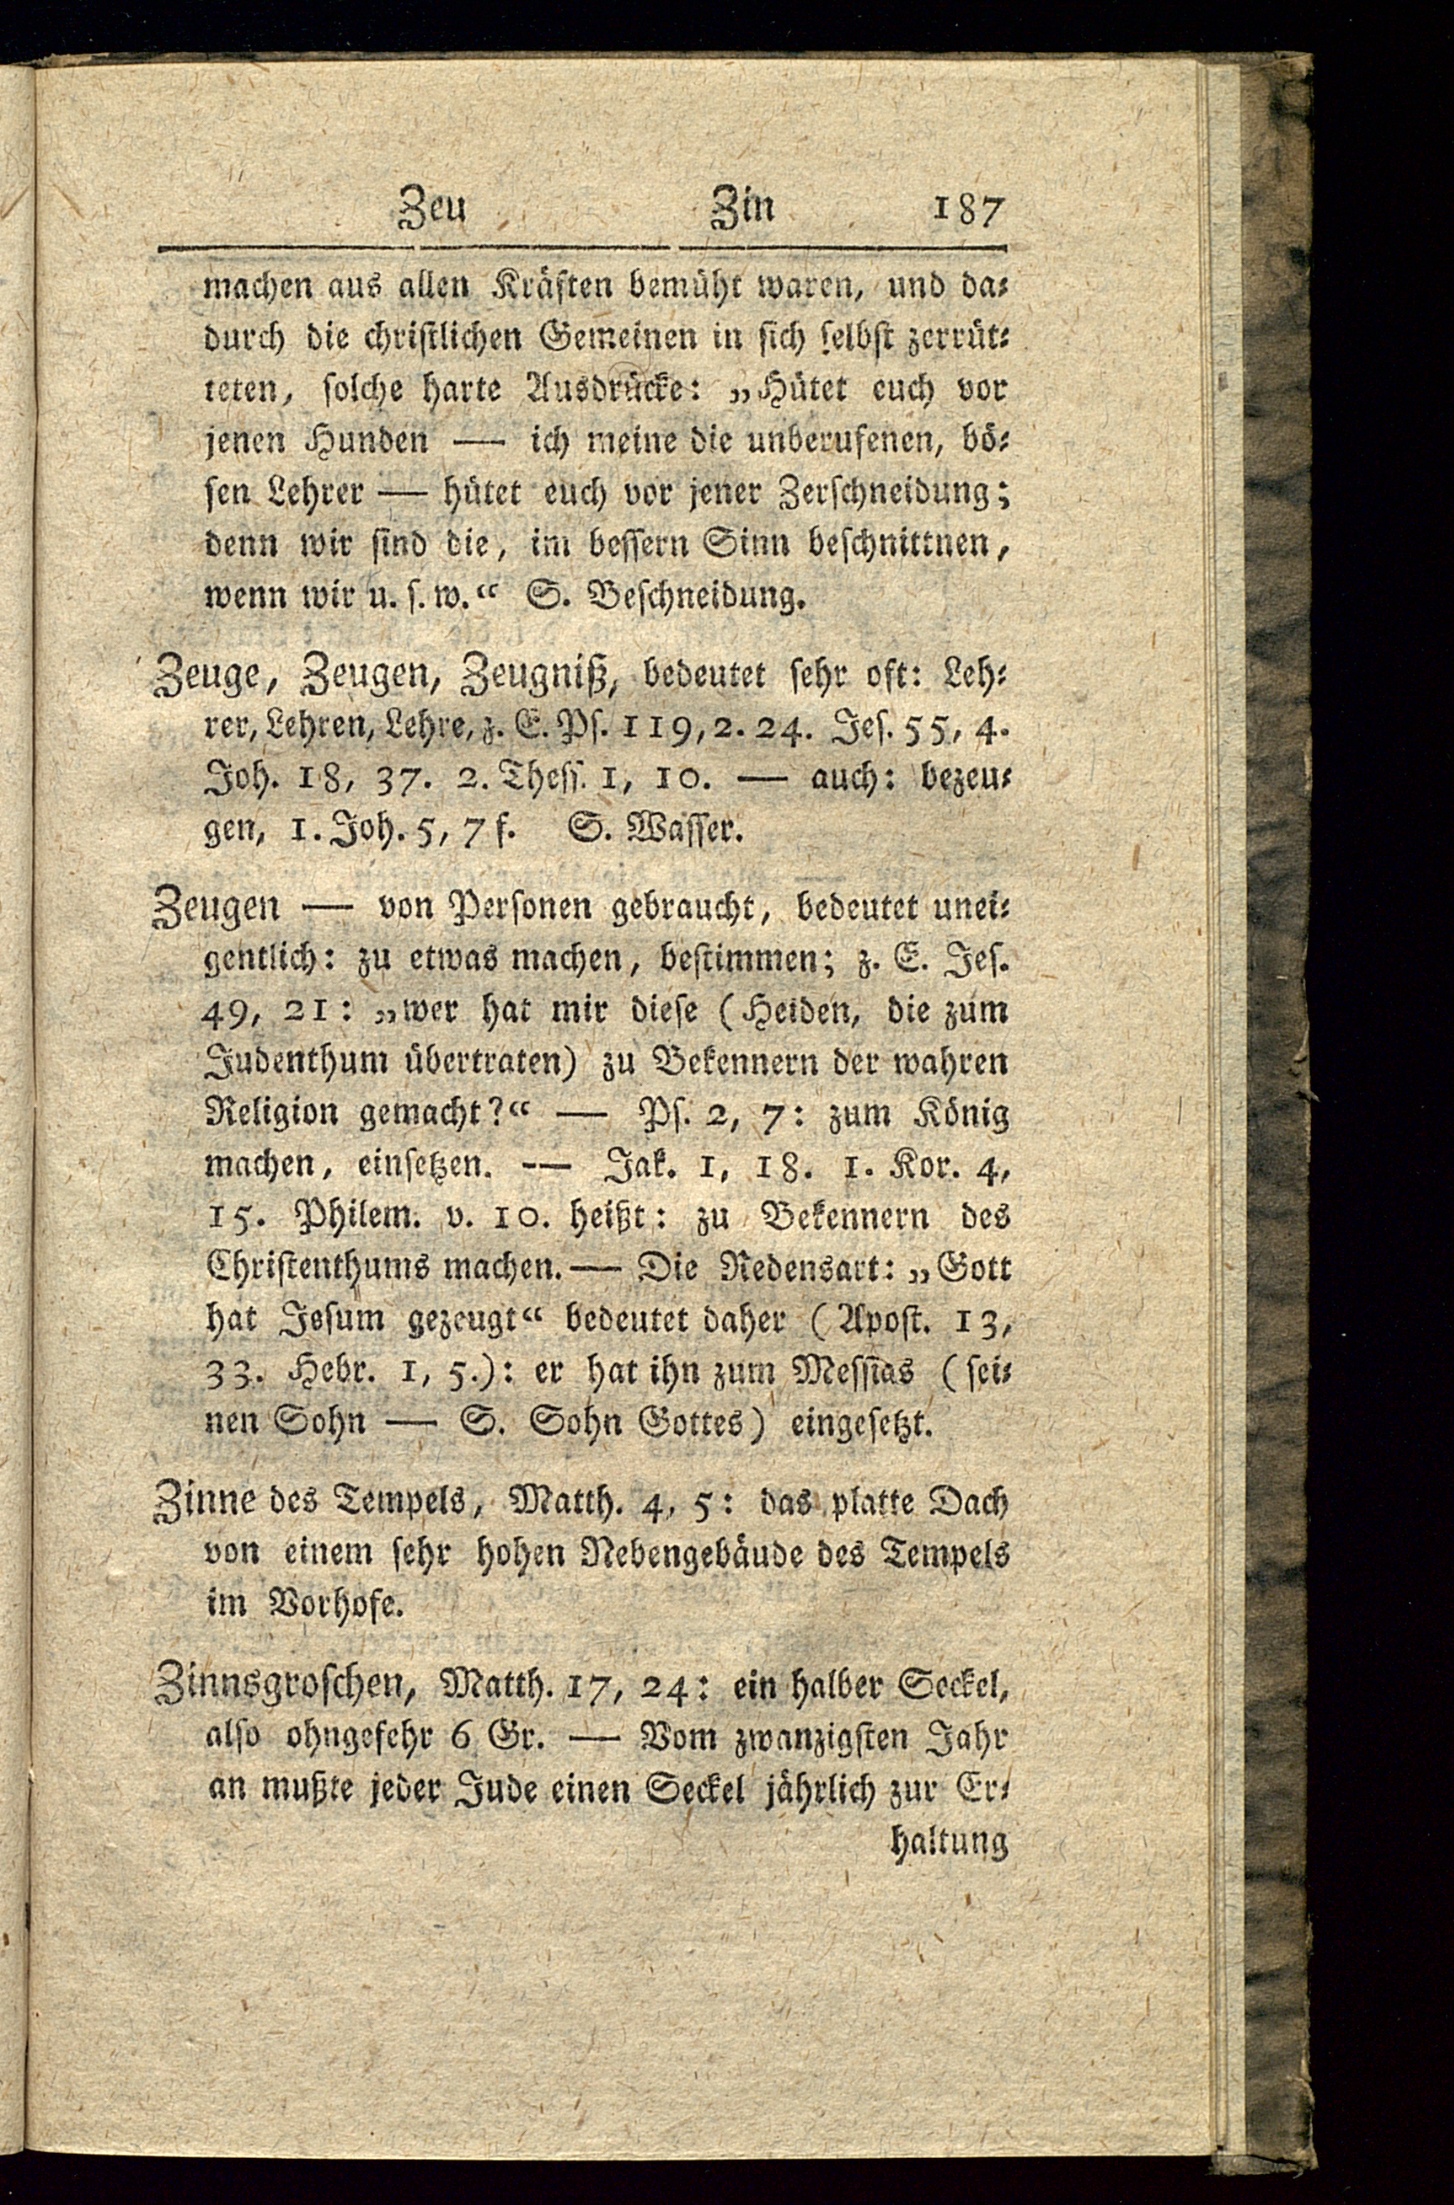 Zeu Zin 187
machen aus allen Kräften bemüht waren, und da⸗
durch die christlichen Gemeinen in sich selbst zerrüt⸗
teten, solche harte Ausdrücke: „Hütet euch vor
jenen Hunden — ich meine die unberufenen, bö⸗
sen Lehrer — hütet euch vor jener Zerschneidung;
denn wir sind die, im bessern Sinn beschnittnen,
wenn wir u. s. w.“ S. Beschneidung.
Zeuge, Zeugen, Zeugniß, bedeutet sehr oft: Leh⸗
rer, Lehren, Lehre, z. E. Ps. 119, 2. 24. Jes. 55, 4.
Joh. 18, 37. 2. Thess. 1, 10. — auch: bezeu⸗
gen, 1. Joh. 5, 7 f. S. Wasser.
Zeugen — von Personen gebraucht, bedeutet unei⸗
gentlich: zu etwas machen, bestimmen; z. E. Jes.
49, 21: „wer hat mir diese (Heiden, die zum
Judenthum übertraten) zu Bekennern der wahren
Religion gemacht?“ — Ps. 2, 7: zum König
machen, einsetzen. — Jak. 1, 18. 1. Kor. 4,
15. Philem. v. 10. heißt: zu Bekennern des
Christenthums machen. — Die Redensart: „Gott
hat Jesum gezeugt“ bedeutet daher (Apost. 13,
33. Hebr. 1, 5.): er hat ihn zum Messias (sei⸗
nen Sohn — S. Sohn Gottes) eingesetzt.
Zinne des Tempels, Matth. 4, 5: das platte Dach
von einem sehr hohen Nebengebäude des Tempels
im Vorhofe.
Zinnsgroschen, Matth. 17, 24: ein halber Seckel,
also ohngefehr 6 Gr. — Vom zwanzigsten Jahr
an mußte jeder Jude einen Seckel jährlich zur Er⸗
haltung